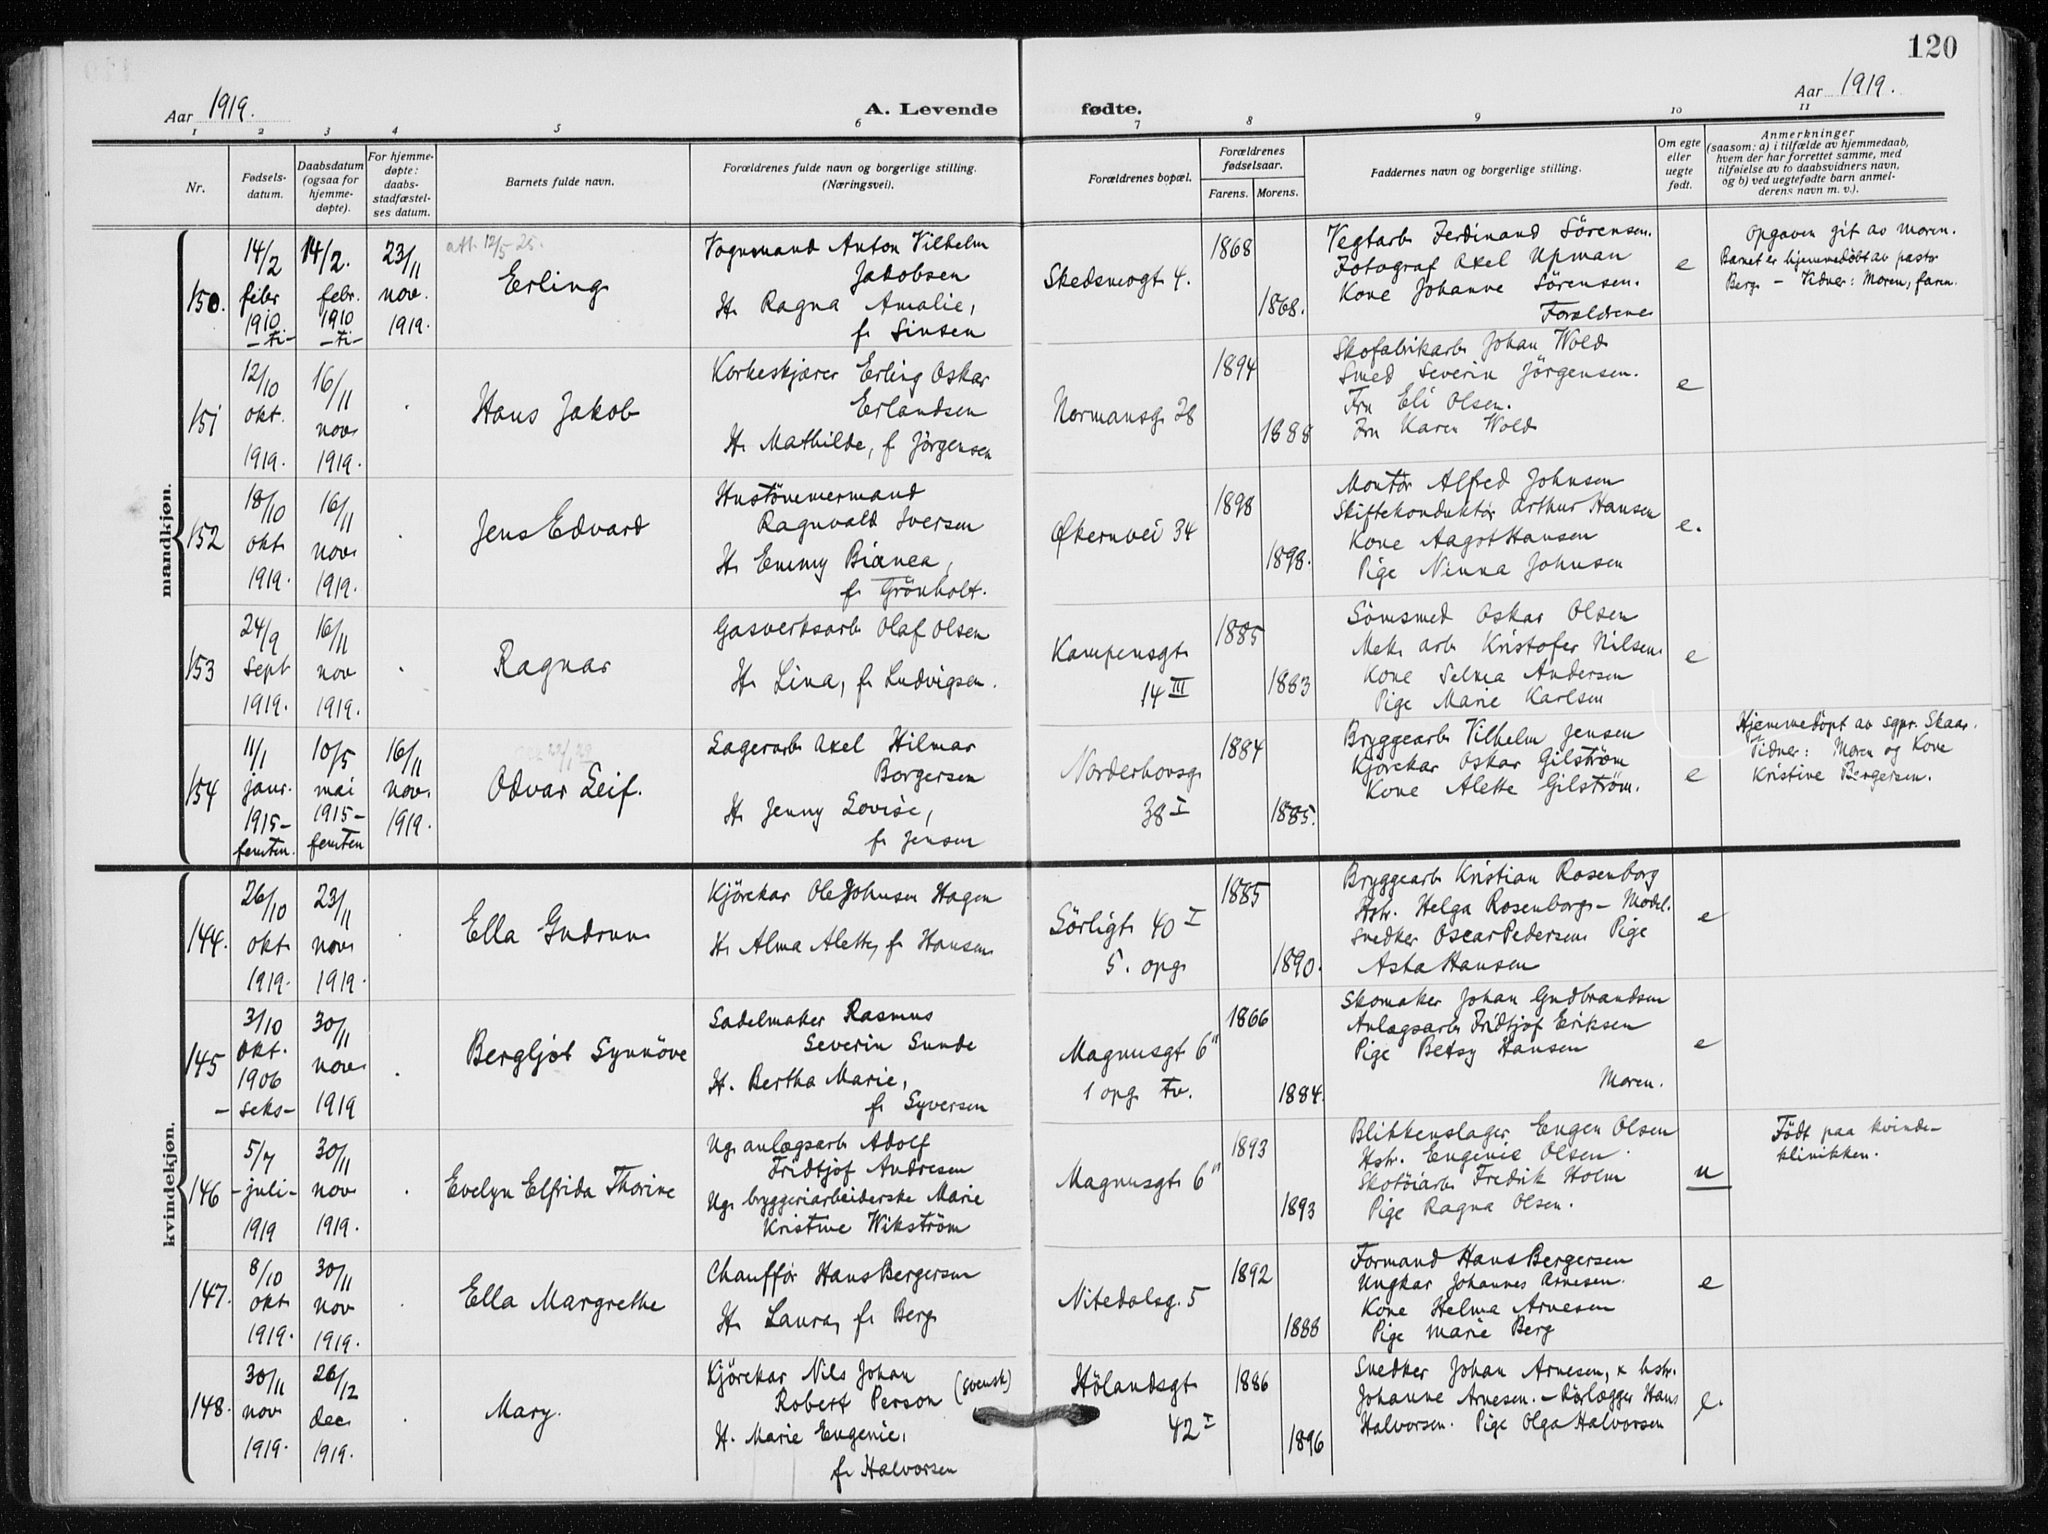 120
Aar 1919.
A. Levende fødte.
Aar 1919.
1 2 3 4 5 6 7 8 9 10 11
Nr.
Fødsels-
datum.
Daabsdatum
(ogsaa for
hjemme-
døpte).
For hjemme-
døpte:
daabs-
stadfæstel-
ses datum.
Barnets fulde navn.
Forældrenes fulde navn og borgerlige stilling.
(Næringsvei).
Forældrenes bopæl.
Forældrenes
fødselsaar.
Farens. Morens.
Faddernes navn og borgerlige stilling.
Om egte
eller
uegte
født.
Anmerkninger
(saasom: a) i tilfælde av hjemmedaab,
hvem der har forrettet samme, med
tilføielse av to daabsvidners navn,
og b) ved uegtefødte barn anmel-
derens navn m. v.).
mandkjøn.
150.
14/2
febr
1910
-ti-
14/2.
febr.
1910
-ti-
23/11
nov.
1919.
att. 12/5-25.
Erling
Vognmand Anton Vilhelm
Jakobsen
H. Ragna Amalie,
f. Sinsen
Skedsmogt 4.
1868
1868.
Vegtarb. Ferdinand Sörensen.
Fotograf Axel Upman
Kone Johanne Sörensen.
Forældrene
e
Opgaven git av moren.
Barnet er hjemmedöbt av pastor
Berg - Vidner: Moren, faren.
151
12/10
okt.
1919.
16/11
nov.
1919.
Hans Jakob
Korkeskjærer Erling Oskar
Erlandsen
H. Mathilde, f. Jörgensen
Normansg. 28
1894
1888
Skofabrikarb. Johan Wold
Smed Severin Jörgensen.
Fru Eli Olsen.
Fru Karen Wold
e
152
18/10
okt.
1919.
16/11
nov.
1919.
Jens Edvard
Hustömmermand
Ragnvald Iversen
H. Emmy Bianca,
f. Grönholt.
Økernvei 34
1898
1898.
Montør Alfred Johnsen
Skiftekonduktör Arthur Hansen
Kone Aagot Hansen
Pige Ninna Johnsen
e.
153
24/9
sept
1919.
16/11
nov
1919.
Ragnar
Gasverksarb. Olaf Olsen
H. Lina, f. Ludvigsen.
Kampensgt.
14 III
1885
1883
Sömsmed Oskar Olsen
Mek. arb. Kristofer Nilsen.
Kone Selma Andersen
Pige Marie Karlsen
e
154
11/1
janr.
1915-
femten.
10/5
mai
1915-
femten
16/11
nov.
1919.
Odvar Leif.
Lagerarb. Axel Hilmar
Borgersen
H. Jenny Lovise,
f. Jensen
Norderhovsg.
38 I
1884
1885.
Bryggearb. Vilhelm Jensen
Kjörekar Oskar Gilström
Kone Alette Gilström.
e
Hjemmedöpt av sgpr. Skaar.
Vidner: Moren og Kone
Kristine Bergersen.
kvindekjøn.
144.
26/10
okt.
1919.
23/11
nov.
1919.
Ella Gudrun
Kjörekar Ole Johnsen Hagen
H. Alma Alette, f. Hansen
Sörligt. 40 I
5. opg.
1885
1890.
Bryggearb. Kristian Rosenborg
Hstr. Helga Rosenborg - Model.
snedker Oscar Pedersen. Pige
Asta Hansen
e
145
3/10
okt.
1906
- seks-
30/11
nov.
1919
Bergljot Synnöve
Sadelmaker Rasmus
Severin Sunde
H. Bertha Marie,
f. Syversen
Magnusgt. 6"
1 opg. tv.
1866
1884.
Skomaker Johan Gudbrandsen
Anlægsarb. Fridtjof Eriksen
Pige Betsy Hansen
Moren.
e
146
5/7
-juli-
1919
30/11
nov
1919.
Evelyn Elfrida Thorine
Ug. anlægsarb. Adolf
Fridtjof Andresen
Ug. bryggeriarbeiderske Marie
Kristine Wikström
Magnusgt. 6"
1893
1893
Blikkenslager Eugen Olsen
Hstr. Eugenie Olsen.
Skotöiarb. Fredrik Holm
Pige Ragna Olsen.
u
Födt paa kvinde-
klinikken.
147.
8/10
okt
1919.
30/11
nov
1919.
Ella Margrethe
Chaufför Hans Bergersen
H. Laura, f. Berg.
Nitedalsg. 5
1892
1888
Formand Hans Bergersen
Ungkar Johannes Arnesen.
Kone Helma Arnesen
Pige Marie Berg
e
148.
30/11
nov
1919.
26/12
dec.
1919.
Mary.
Kjörekar Nils Johan
Robert Person (svensk)
H. Marie Eugenie,
f. Halvorsen
Hölandsgt
42 I
1886
1896
Snedker Johan Arnesen, x hstr.
Johanne Arnesen. - Rörlægger Hans
Halvorsen. Pige Olga Halvorsen
e.